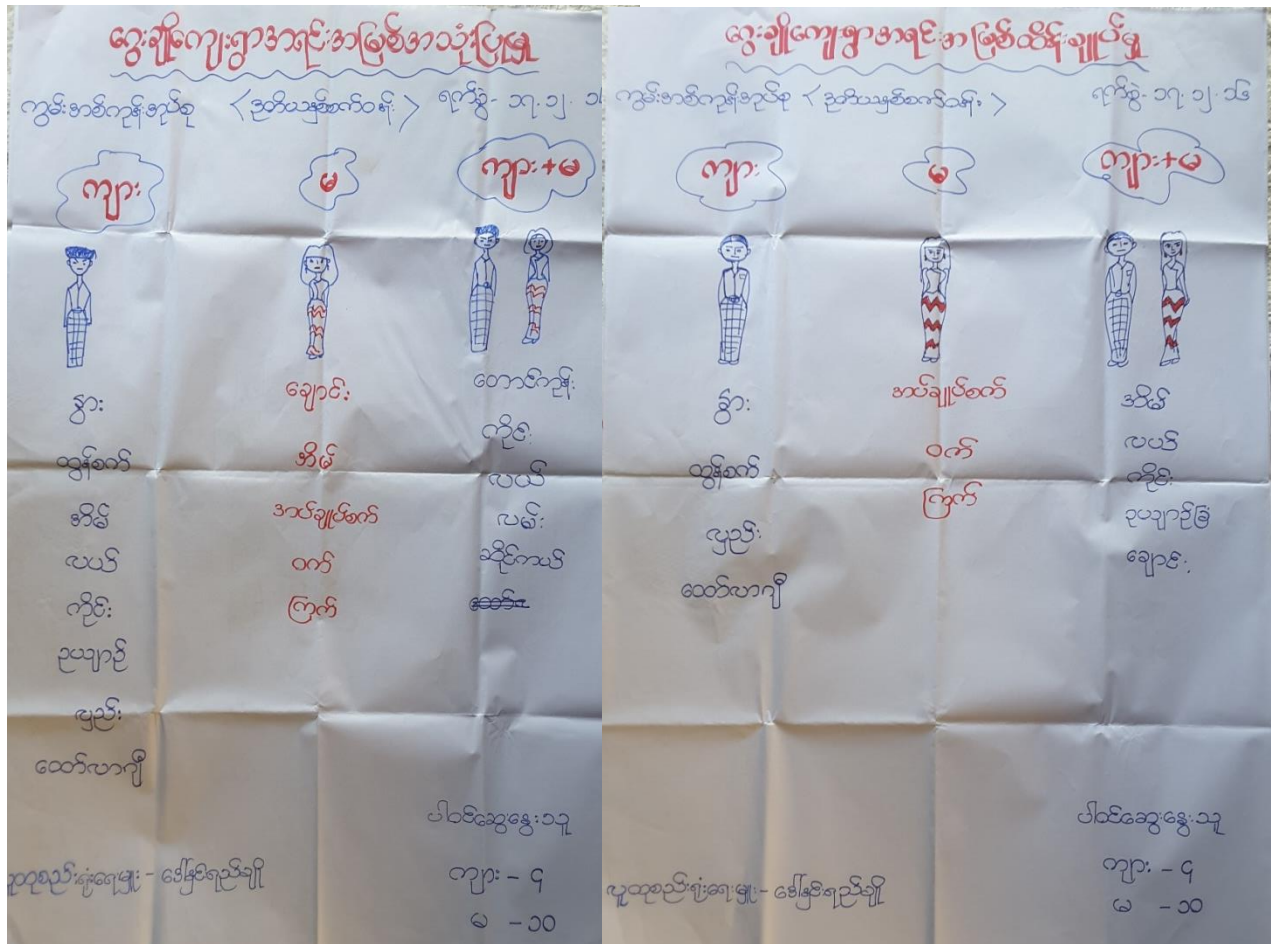 ဂွေးချိုကျေးရွာအရင်းအမြစ်အသုံးပြုမှု
ကွမ်းအစ်ကုန်းအုပ်စု <ဒုတိယနှစ်စက်ဝန်း> ရက်စွဲ- ၁၇.၁၂.၁
ကျား မ ကျား+မ
နွား
ထွန်စက်
အိမ်
လယ်
ကိုင်း
ဥယျာဉ်
လှည်း
ထော်လာဂျီ
ချောင်း
အိမ်
အပ်ချုပ်စက်
ဝက်
ကြက်
တောင်ကုန်း
ကိုင်း
လယ်
လမ်း
ဆိုင်ကယ်
ပါဝင်ဆွေးနွေးသူ
ကျား - ၄
မ - ၁၀
လူထုစည်းရုံးရေးမှူး - ဒေါ်နှင်းရည်ချို
ဂွေးချိုကျေးရွာအရင်းအမြစ်ထိန်းချုပ်မှု
ကွမ်းအစ်ကုန်းအုပ်စု <ဒုတိယနှစ်စက်ဝန်း> ရက်စွဲ- ၁၇.၁၂.၁၆
ကျား မ ကျား+မ
နွား
ထွန်စက်
လှည်း
ထော်လာဂျီ
အပ်ချုပ်စက်
ဝက်
ကြက်
အိမ်
လယ်
ကိုင်း
ဥယျာဉ်ခြံ
ချောင်း
ပါဝင်ဆွေးနွေးသူ
ကျား - ၄
မ - ၁၀
လူထုစည်းရုံးရေးမှူး - ဒေါ်နှင်းရည်ချို